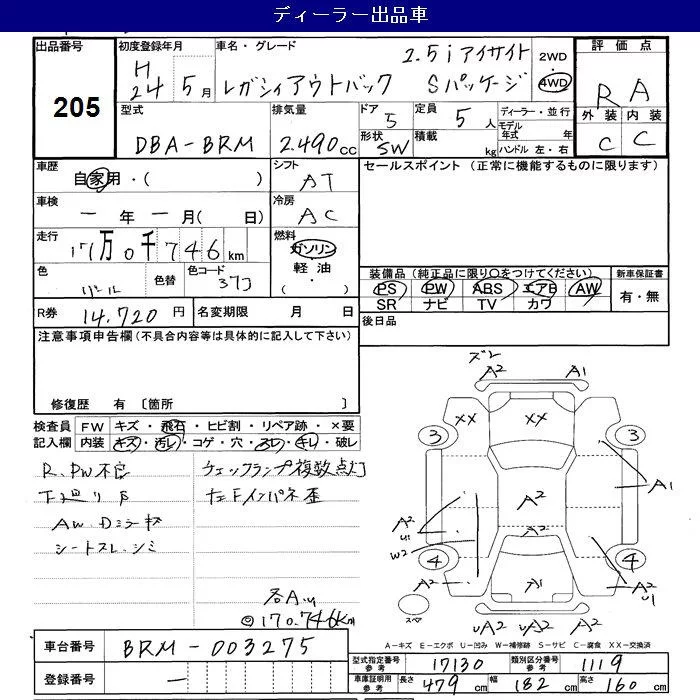 ディーラー出品車
出品番号 205
初度登録年月 H24 5月
車名・グレード 2.5i アイサイト
レガシィアウトバック Sパッケージ
2WD 4WD
評価点 RA
外装 C 内装 C
型式 DBA-BRM
排気量 2.490cc
ドア 5
形状 SW
定員 5人
積載 kg
ディーラー・並行
モデル年式 年
ハンドル 左・右
車歴 自家用・( )
シフト AT
セールスポイント (正常に機能するものに限ります)
車検 一年一月( 日)
冷房 AC
走行 17万0千746km
燃料 ガソリン
軽油
・( )
色 パール
色替
色コード 37J
装備品(純正品に限り○をつけてください)
PS PW ABS エアB AW
SR ナビ TV カワ
新車保証書 有・無
R券 14.720円
名変期限 月 日
後日品
注意事項申告欄(不具合内容等は具体的に記入して下さい)
修復歴 有 〔箇所 〕
検査員記入欄
FW キズ・飛石・ヒビ割・リペア跡・×要
内装 キズ・汚レ・コゲ・穴・スレ・キレ・破レ
R.PW不良
下廻りサビ
AW.Dミラーキズ
シートスレ.シミ
ウェッジランプ複数点灯
左Fインパネ歪
各A.u
◎170.746km
ズレ
A2 A1
XX XX
3 3
A2 A1
A2
U1
W2
A2
4 4
A2 A1 A2
U1
スペア
UA2 UA2 A2
A-キズ E-エクボ U-凹み W-補修跡 S-サビ C-腐食 XX-交換済
車台番号 BRM-003275
登録番号 一
型式指定番号 参考 17130
類別区分番号 参考 1119
車庫証明用 参考 長さ 479cm 幅 182cm 高さ 160cm